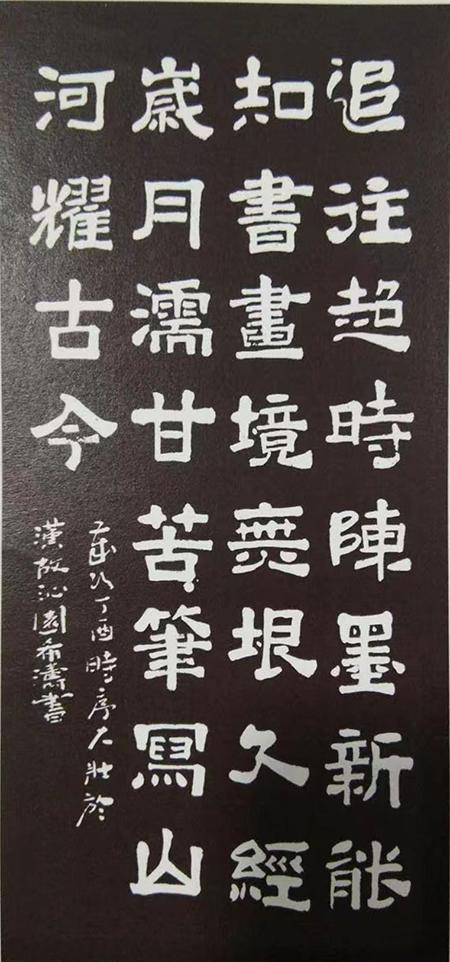 追往超時陳墨新能
知書畫境無垠久經
歲月濡甘苦筆寫山
河耀古今
歲次丁酉時序大壯於
漢故沁園布濤書